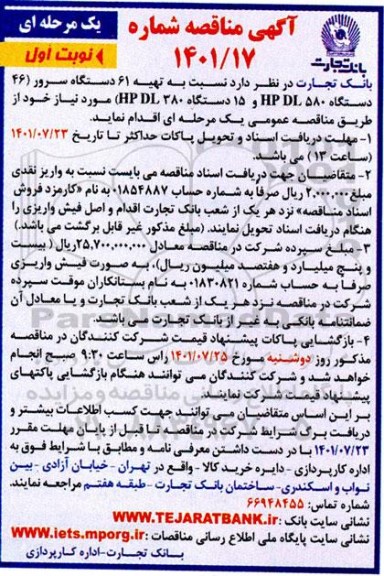 آگهی مناقصه شماره
۱۴۰۱/۱۷
یک مرحله ای
نوبت اول
بانک تجارت
بانک تجارت در نظر دارد نسبت به تهیه ۶۱ دستگاه سرور (۴۶
دستگاه HP DL ۵۸۰ و ۱۵ دستگاه HP DL ۳۸۰) مورد نیاز خود از
طریق مناقصه عمومی یک مرحله ای اقدام نماید.
۱- مهلت دریافت اسناد و تحویل پاکات حداکثر تا تاریخ ۱۴۰۱/۰۷/۲۳
(ساعت ۱۳) می باشد.
۲- متقاضیان جهت دریافت اسناد مناقصه می بایست نسبت به واریز نقدی
مبلغ ۲.۰۰۰.۰۰۰ ریال صرفا به شماره حساب ۰۱۸۵۴۸۸۷ به نام «کارمزد فروش
اسناد مناقصه» نزد هر یک از شعب بانک تجارت اقدام و اصل فیش واریزی را
هنگام دریافت اسناد تحویل نمایند. (مبلغ مذکور غیر قابل برگشت می باشد.)
۳- مبلغ سپرده شرکت در مناقصه معادل ۲۵,۷۰۰,۰۰۰,۰۰۰ ریال( بیست
و پنج میلیارد و هفتصد میلیون ریال)، به صورت فیش واریزی
صرفا به حساب شماره ۰۱۸۳۰۸۲۱ به نام بستانکاران موقت سپرده
شرکت در مناقصه نزد هر یک از شعب بانک تجارت و یا معادل آن
ضمانتنامه بانکی به غیر از بانک تجارت می باشد.
۴- بازگشایی پاکات پیشنهاد قیمت شرکت کنندگان در مناقصه
مذکور روز دوشنبه مورخ ۱۴۰۱/۰۷/۲۵ راس ساعت ۹:۳۰ صبح انجام
خواهد شد و شرکت کنندگان می توانند هنگام بازگشایی پاکتهای
پیشنهاد قیمت شرکت نمایند.
بر این اساس متقاضیان می توانند جهت کسب اطلاعات بیشتر و
دریافت برگ شرایط شرکت در مناقصه تا قبل از پایان مهلت مقرر
۱۴۰۱/۰۷/۲۳ با در دست داشتن معرفی نامه و مطابق با شرایط فوق به
اداره کارپردازی - دایره خرید کالا - واقع در تهران - خیابان آزادی - بین
نواب و اسکندری- ساختمان بانک تجارت - طبقه هفتم مراجعه نمایند.
شماره تماس: ۶۶۹۴۸۴۵۵
نشانی سایت بانک : WWW.TEJARATBANK.ir
نشانی سایت پایگاه ملی اطلاع رسانی مناقصات :www.iets.mporg.ir
بانک تجارت-اداره کارپردازی